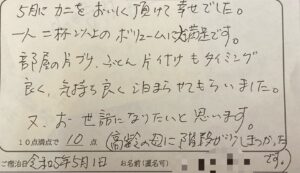 5月にカニをおいしく頂けて幸せでした。
一人二杯以上のボリュームに大満足です。
部屋の片づけ、ふとん片付けもタイミング
良く、気持ち良く泊まらせてもらいました。
又、お世話になりたいと思います。
10点満点で 10 点 (高齢の母に階段が少しきつかった
です。)
ご宿泊日 令和5年5月1日 お名前(匿名可)